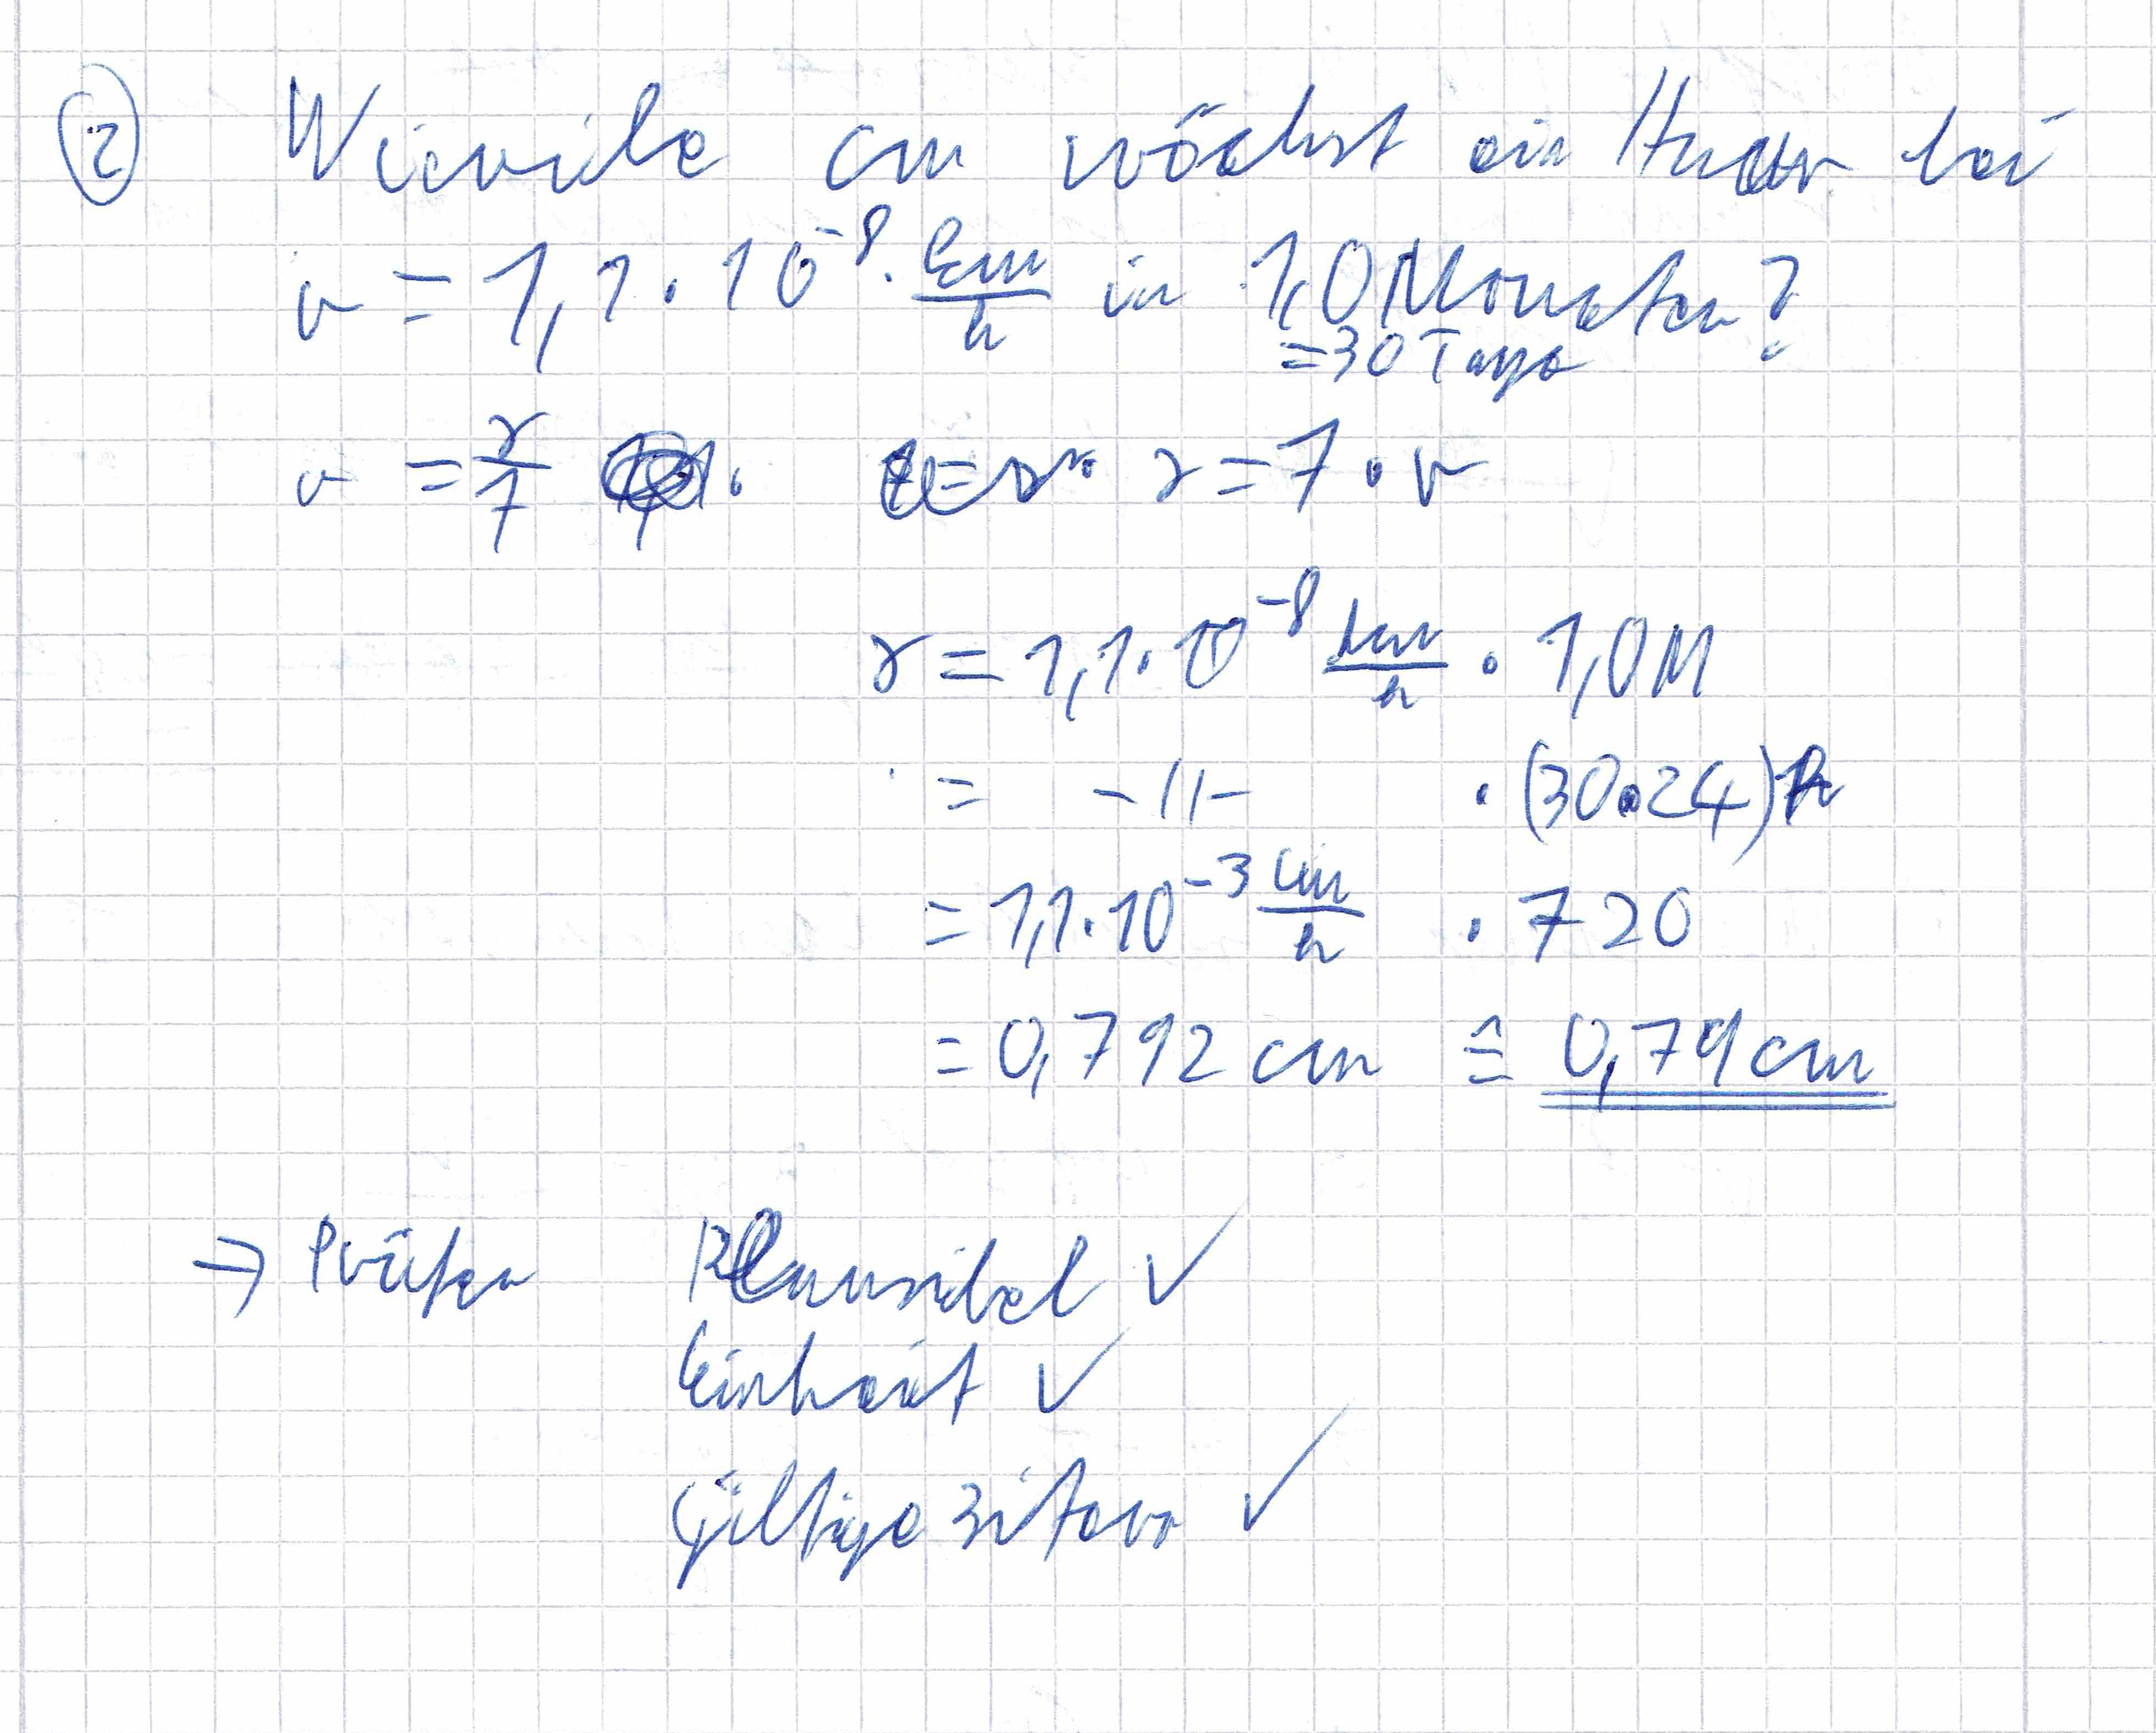 ② Wieviele cm wächst ein Haar bei
v = 1,1 · 10⁻⁸ · km/h in 1,0 Monaten?
= 30 Tage
v = s/t s = t · v
s = 1,1 · 10⁻⁸ km/h · 1,0 M
= -11- · (30·24) h
= 1,1 · 10⁻³ cm/h · 720
= 0,792 cm ≙ 0,79 cm
→ Prüfen Plausibel ✓
Einheit ✓
Gültige Ziffern ✓